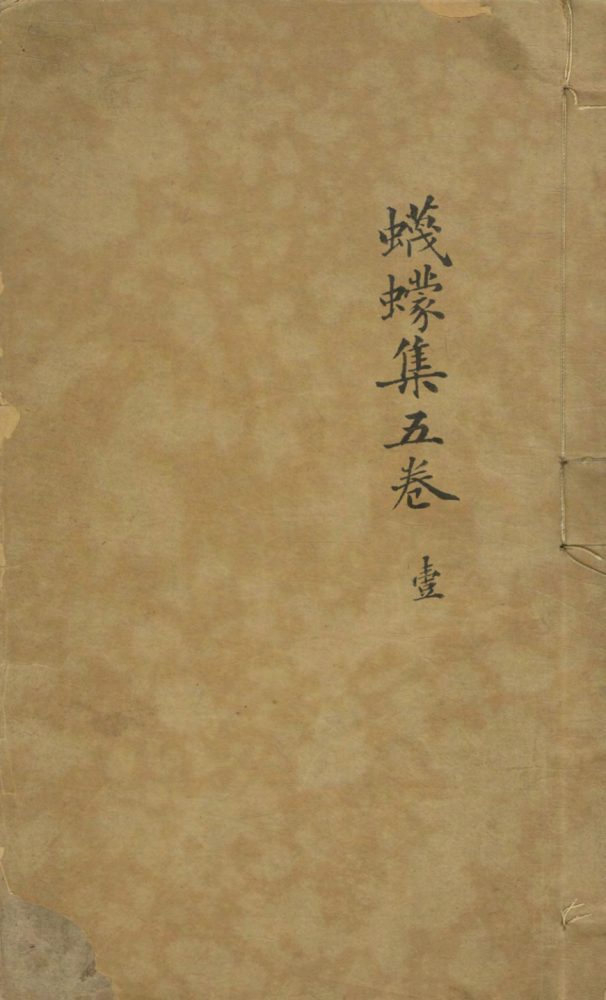 蠛蠓集五卷
壹